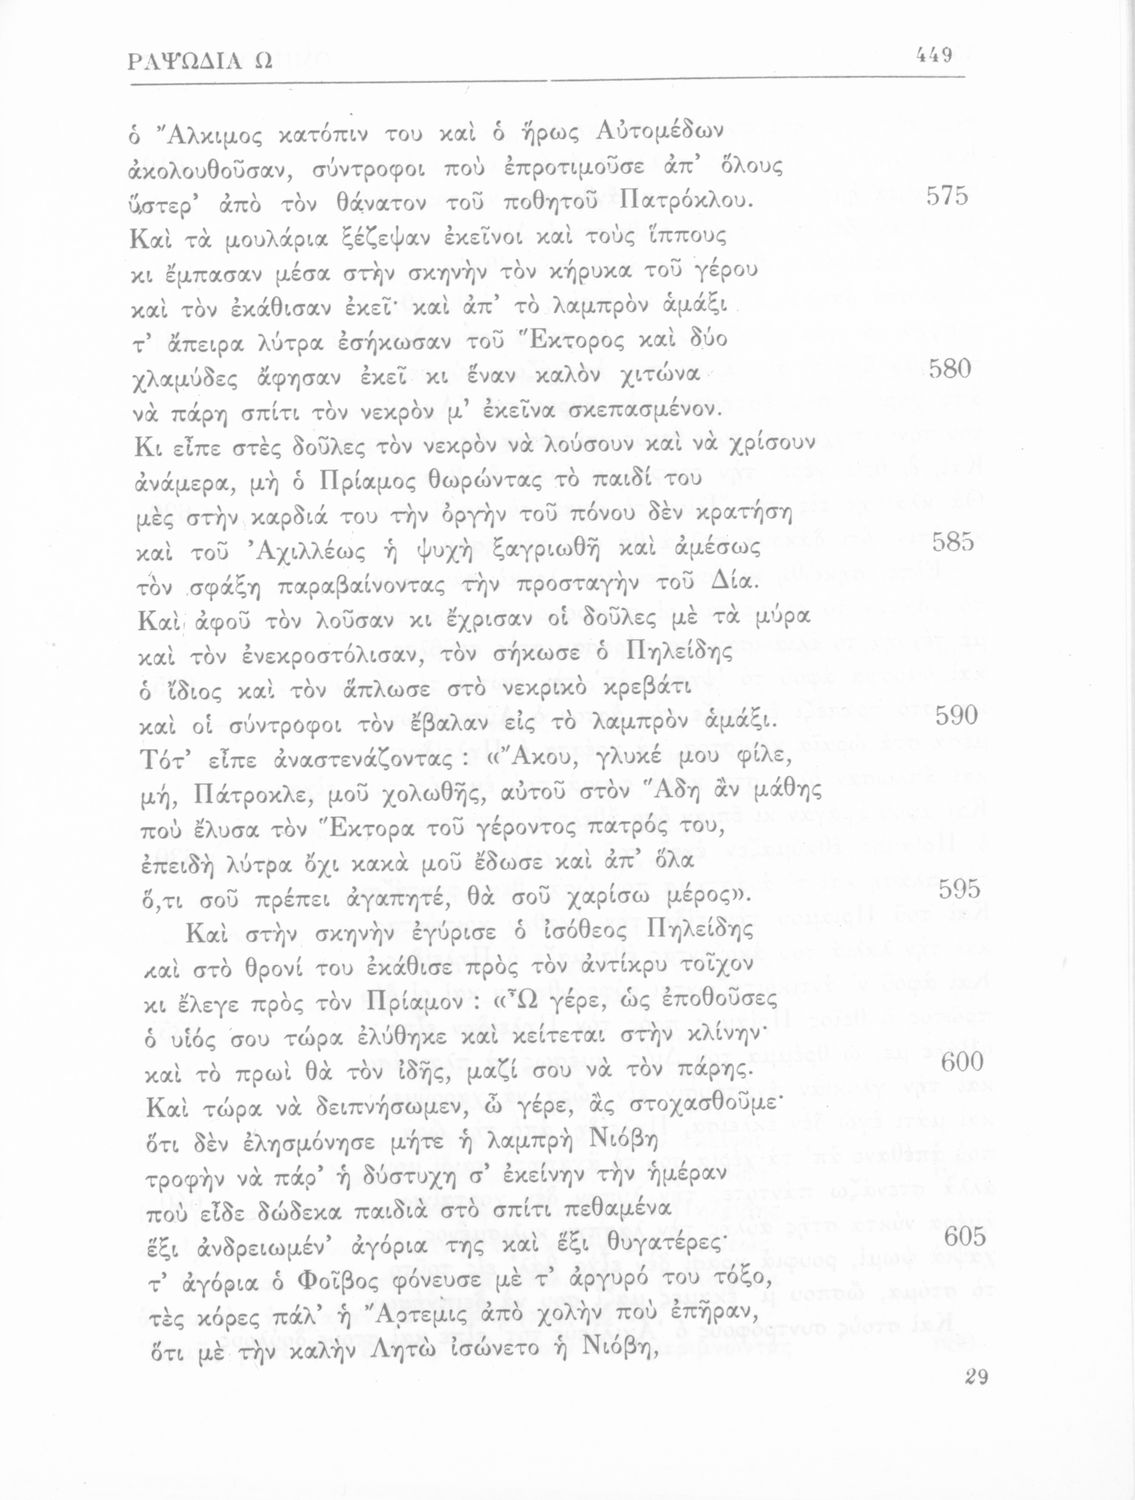 ΡΑΨΩΔΙΑ Ω 449
ὁ Ἄλκιμος κατόπιν του καὶ ὁ ἥρως Αὐτομέδων
ἀκολουθοῦσαν, σύντροφοι ποὺ ἐπροτιμοῦσε ἀπ’ ὅλους
ὕστερ’ ἀπὸ τὸν θάνατον τοῦ ποθητοῦ Πατρόκλου. 575
Καὶ τὰ μουλάρια ξέζεψαν ἐκεῖνοι καὶ τοὺς ἵππους
κι ἔμπασαν μέσα στὴν σκηνὴν τὸν κήρυκα τοῦ γέρου
καὶ τὸν ἐκάθισαν ἐκεῖ· καὶ ἀπ’ τὸ λαμπρὸν ἁμάξι
τ’ ἄπειρα λύτρα ἐσήκωσαν τοῦ Ἕκτορος καὶ δύο
χλαμύδες ἄφησαν ἐκεῖ κι ἕναν καλὸν χιτώνα 580
νὰ πάρη σπίτι τὸν νεκρὸν μ’ ἐκεῖνα σκεπασμένον.
Κι εἶπε στὲς δοῦλες τὸν νεκρὸν νὰ λούσουν καὶ νὰ χρίσουν
ἀνάμερα, μὴ ὁ Πρίαμος θωρώντας τὸ παιδί του
μὲς στὴν καρδιά του τὴν ὀργὴν τοῦ πόνου δὲν κρατήση
καὶ τοῦ Ἀχιλλέως ἡ ψυχὴ ξαγριωθῆ καὶ ἀμέσως 585
τὸν σφάξη παραβαίνοντας τὴν προσταγὴν τοῦ Δία.
Καὶ ἀφοῦ τὸν λοῦσαν κι ἔχρισαν οἱ δοῦλες μὲ τὰ μύρα
καὶ τὸν ἐνεκροστόλισαν, τὸν σήκωσε ὁ Πηλείδης
ὁ ἴδιος καὶ τὸν ἅπλωσε στὸ νεκρικὸ κρεβάτι
καὶ οἱ σύντροφοι τὸν ἔβαλαν εἰς τὸ λαμπρὸν ἁμάξι. 590
Τότ’ εἶπε ἀναστενάζοντας : «Ἄκου, γλυκέ μου φίλε,
μή, Πάτροκλε, μοῦ χολωθῆς, αὐτοῦ στὸν Ἅδη ἂν μάθης
ποὺ ἔλυσα τὸν Ἕκτορα τοῦ γέροντος πατρός του,
ἐπειδὴ λύτρα ὄχι κακὰ μοῦ ἔδωσε καὶ ἀπ’ ὅλα
ὅ,τι σοῦ πρέπει ἀγαπητέ, θὰ σοῦ χαρίσω μέρος». 595
Καὶ στὴν σκηνὴν ἐγύρισε ὁ ἰσόθεος Πηλείδης
καὶ στὸ θρονί του ἐκάθισε πρὸς τὸν ἀντίκρυ τοῖχον
κι ἔλεγε πρὸς τὸν Πρίαμον : «Ὦ γέρε, ὡς ἐποθοῦσες
ὁ υἱός σου τώρα ἐλύθηκε καὶ κείτεται στὴν κλίνην·
καὶ τὸ πρωὶ θὰ τὸν ἰδῆς, μαζί σου νὰ τὸν πάρης. 600
Καὶ τώρα νὰ δειπνήσωμεν, ὦ γέρε, ἂς στοχασθοῦμε·
ὅτι δὲν ἐλησμόνησε μήτε ἡ λαμπρὴ Νιόβη
τροφὴν νὰ πάρ’ ἡ δύστυχη σ’ ἐκείνην τὴν ἡμέραν
ποὺ εἶδε δώδεκα παιδιὰ στὸ σπίτι πεθαμένα
ἕξι ἀνδρειωμέν’ ἀγόρια της καὶ ἕξι θυγατέρες· 605
τ’ ἀγόρια ὁ Φοῖβος φόνευσε μὲ τ’ ἀργυρό του τόξο,
τὲς κόρες πάλ’ ἡ Ἄρτεμις ἀπὸ χολὴν ποὺ ἐπῆραν,
ὅτι μὲ τὴν καλὴν Λητὼ ἰσώνετο ἡ Νιόβη,
29